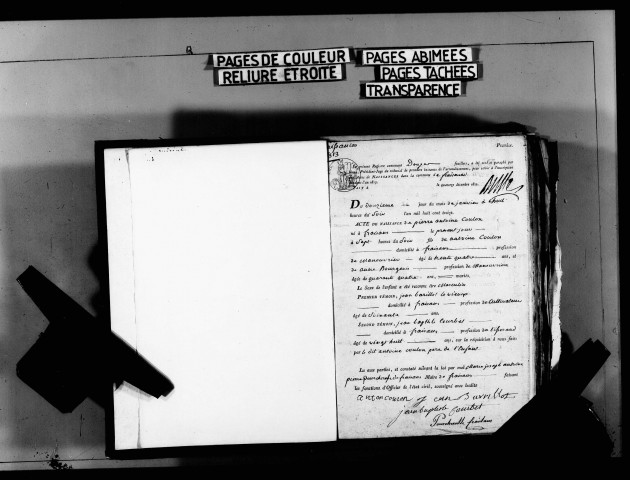 PAGES DE COULEUR
RELIURE ETROITE
PAGES ABIMEES
PAGES TACHÉES
TRANSPARENCE
Premier.
présent Registre contenant feuillets, a été coté et paraphé par
Président-Juge du tribunal de première instance de l'arrondissement, pour servir à l'inscription
NAISSANCES dans la commune de fraisans
le quatorze décembre
Du Douzième jour du mois de janvier à huit
heures du Soir l'an mil huit cent treize.
ACTE DE NAISSANCE de pierre antoine Coulon
né à fraisans le present jour
à Sept heures du Soir fils de antoine Coulon
domicilié à fraisans profession
de Manouvrier âgé de trente quatre ans, et
de anne Bourgeois profession de Manouvrière
âgée de quarante quatre ans, mariés.
Le Sexe de l'enfant a été reconnu être Masculin
PREMIER TÉMOIN, jean barillot le vieux
domicilié à fraisans profession de Cultivateur
âgé de Soixante ans.
SECOND TÉMOIN, jean baptiste Courbet
domicilié à fraisans profession de
âgé de vingt huit ans, sur la réquisition à nous faite
par le dit antoine coulon pere de l'Enfant
Lu aux parties, et constaté suivant la loi par moi Marie joseph antoine
de fraisans Maire de fraisans faisant
les fonctions d'Officier de l'état civil, soussigné avec lesdits
anton coulon jean Barillot
jean baptiste Courbet